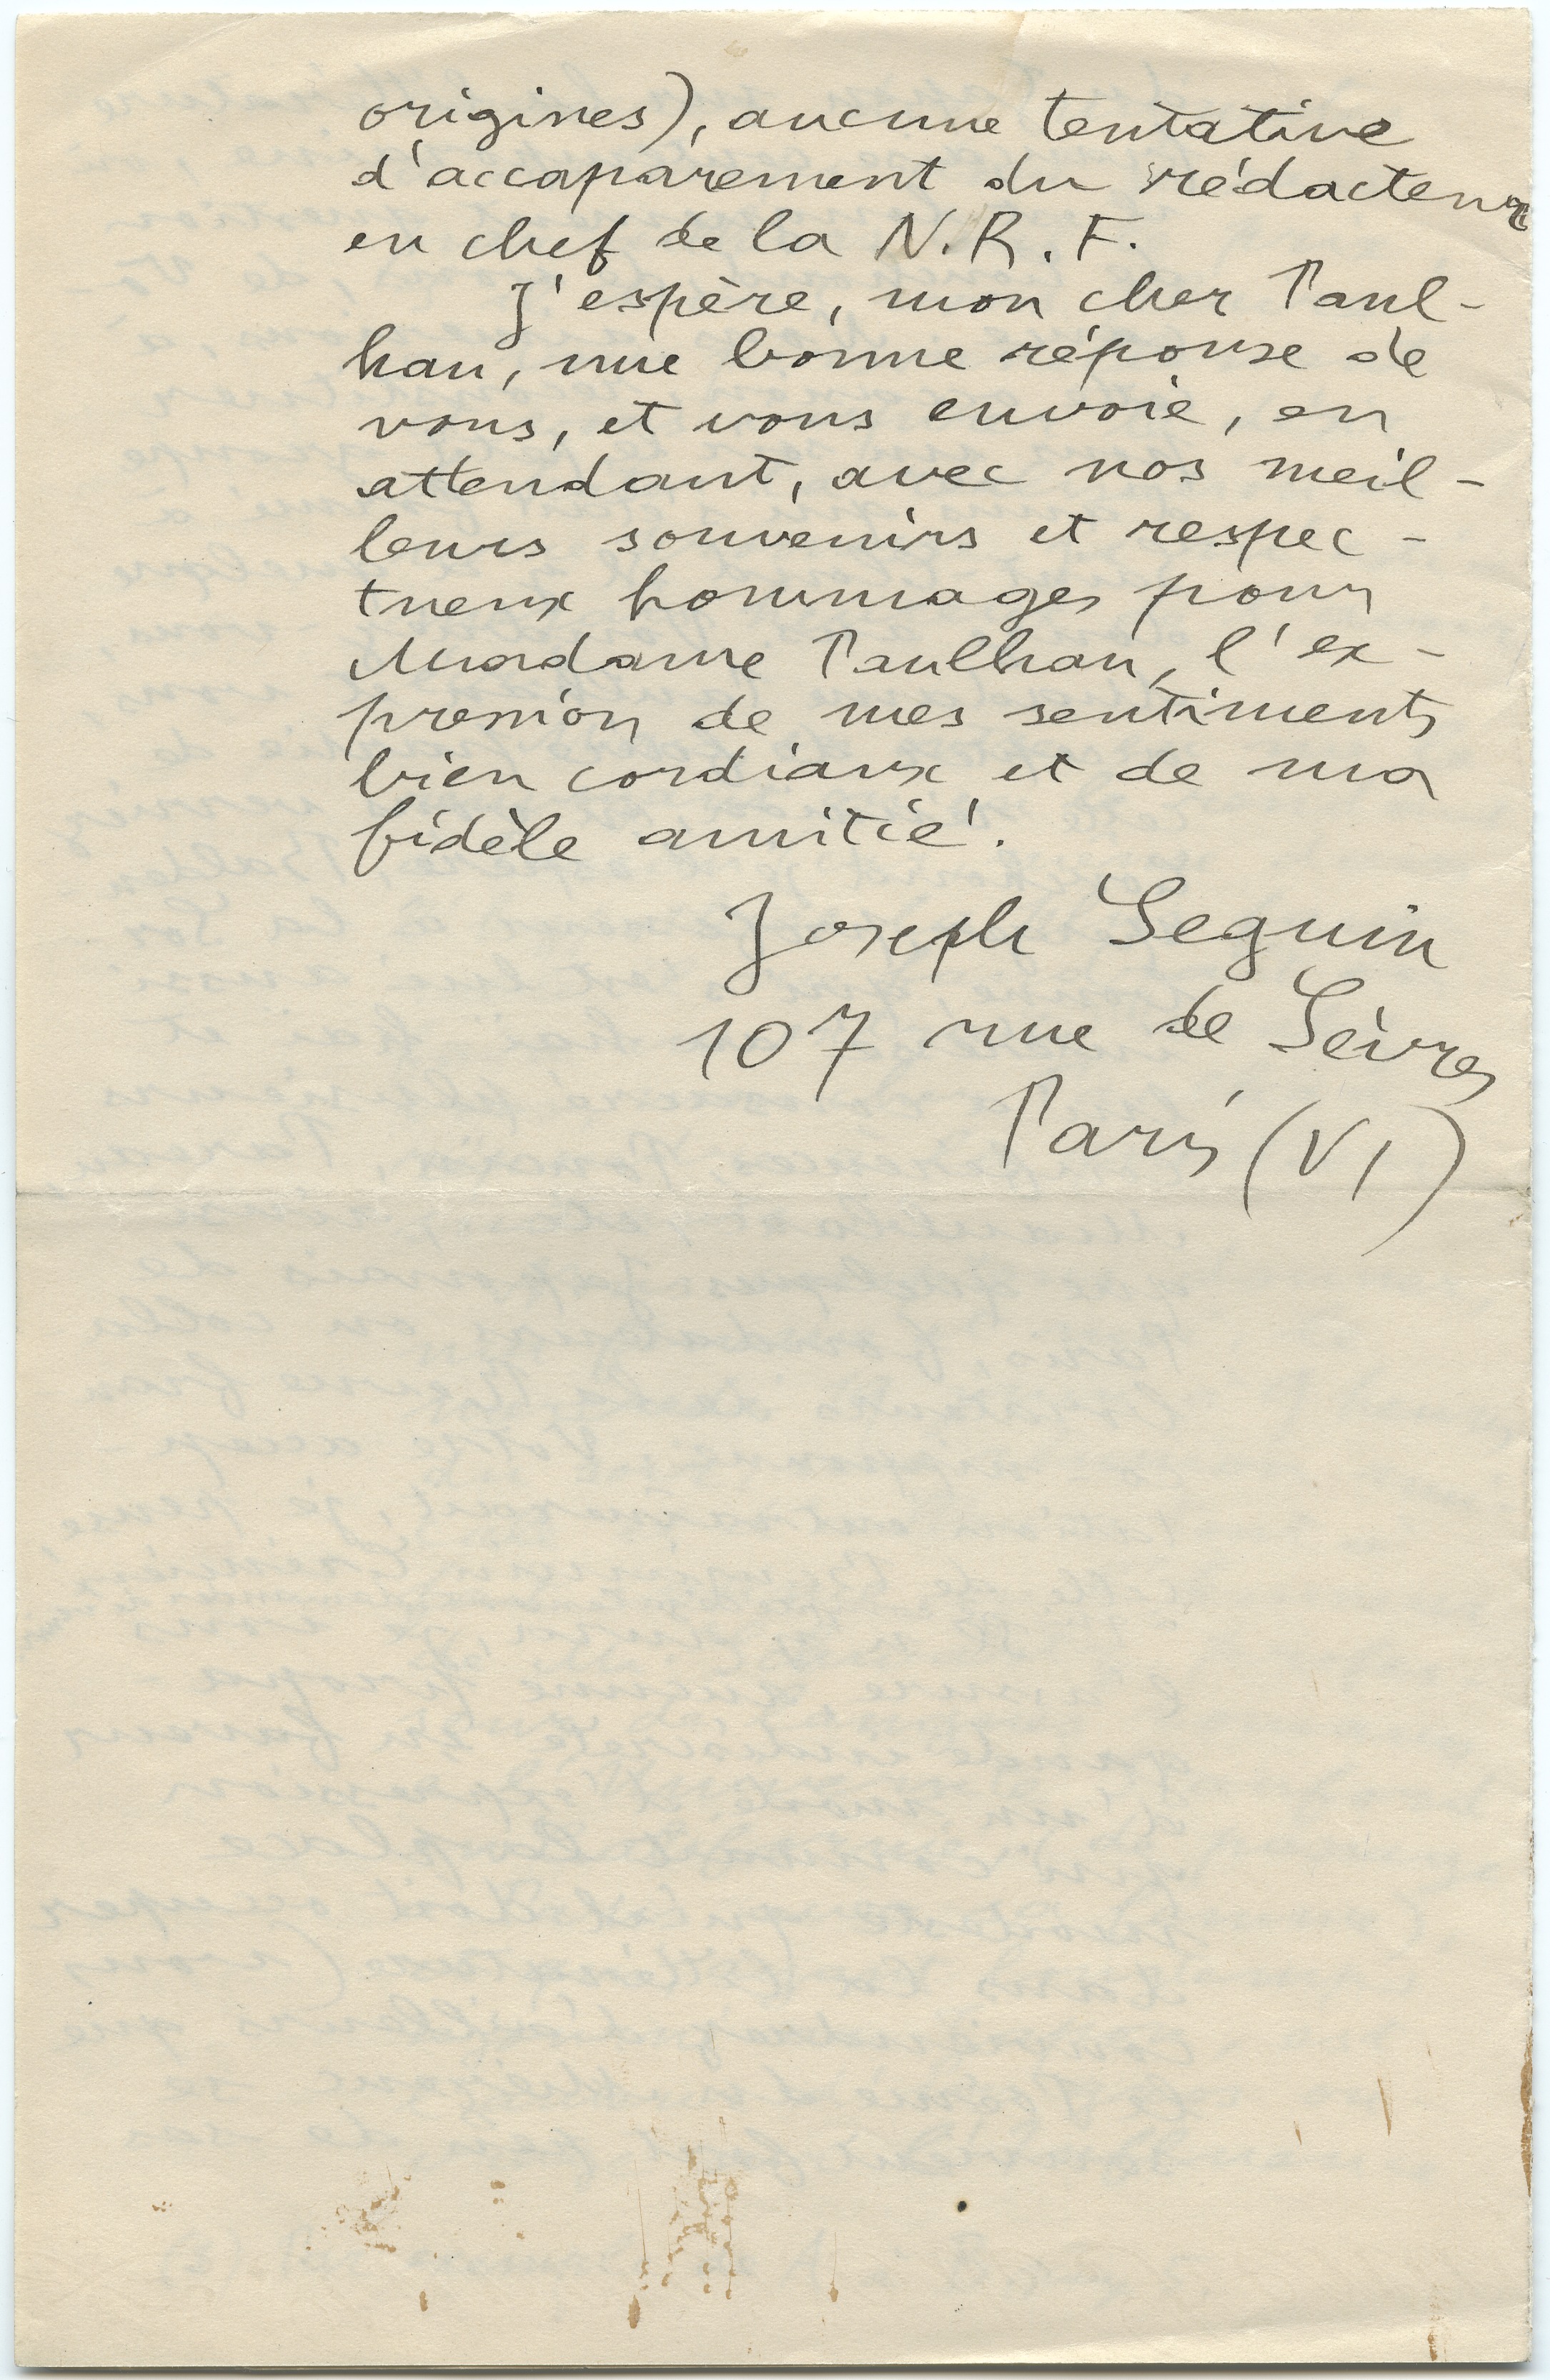 origines), aucune tentative
d'accaparement du rédacteur
en chef de la N.R.F.
J'espère, mon cher Paul-
han, une bonne réponse de
vous, et vous envoie, en
attendant, avec nos meil-
leurs souvenirs et respec-
tueux hommages pour
Madame Paulhan, l'ex-
pression de mes sentiments
bien cordiaux et de ma
fidèle amitié.
Joseph Seguin
107 rue de Sèvres
Paris (VI)